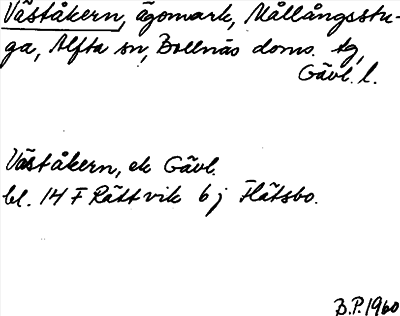 Väståkern, ägomark, Mållångsstu-
ga, Alfta sn, Bollnäs doms. tg,
Gävl. l.
Väståkern, ek Gävl.
bl. 14 F Rättvik 6 j Flätsbo.
B.P. 1960